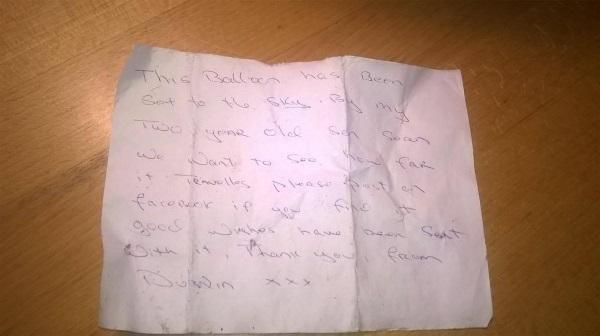 This Balloon has Been
Sent to the Sky. By my
Two year old Son Sean
We Want to See, how far
it Travelles please post on
facebook if you find it
good wishes have been Sent
With it, Thank you, from
Dublin xxx